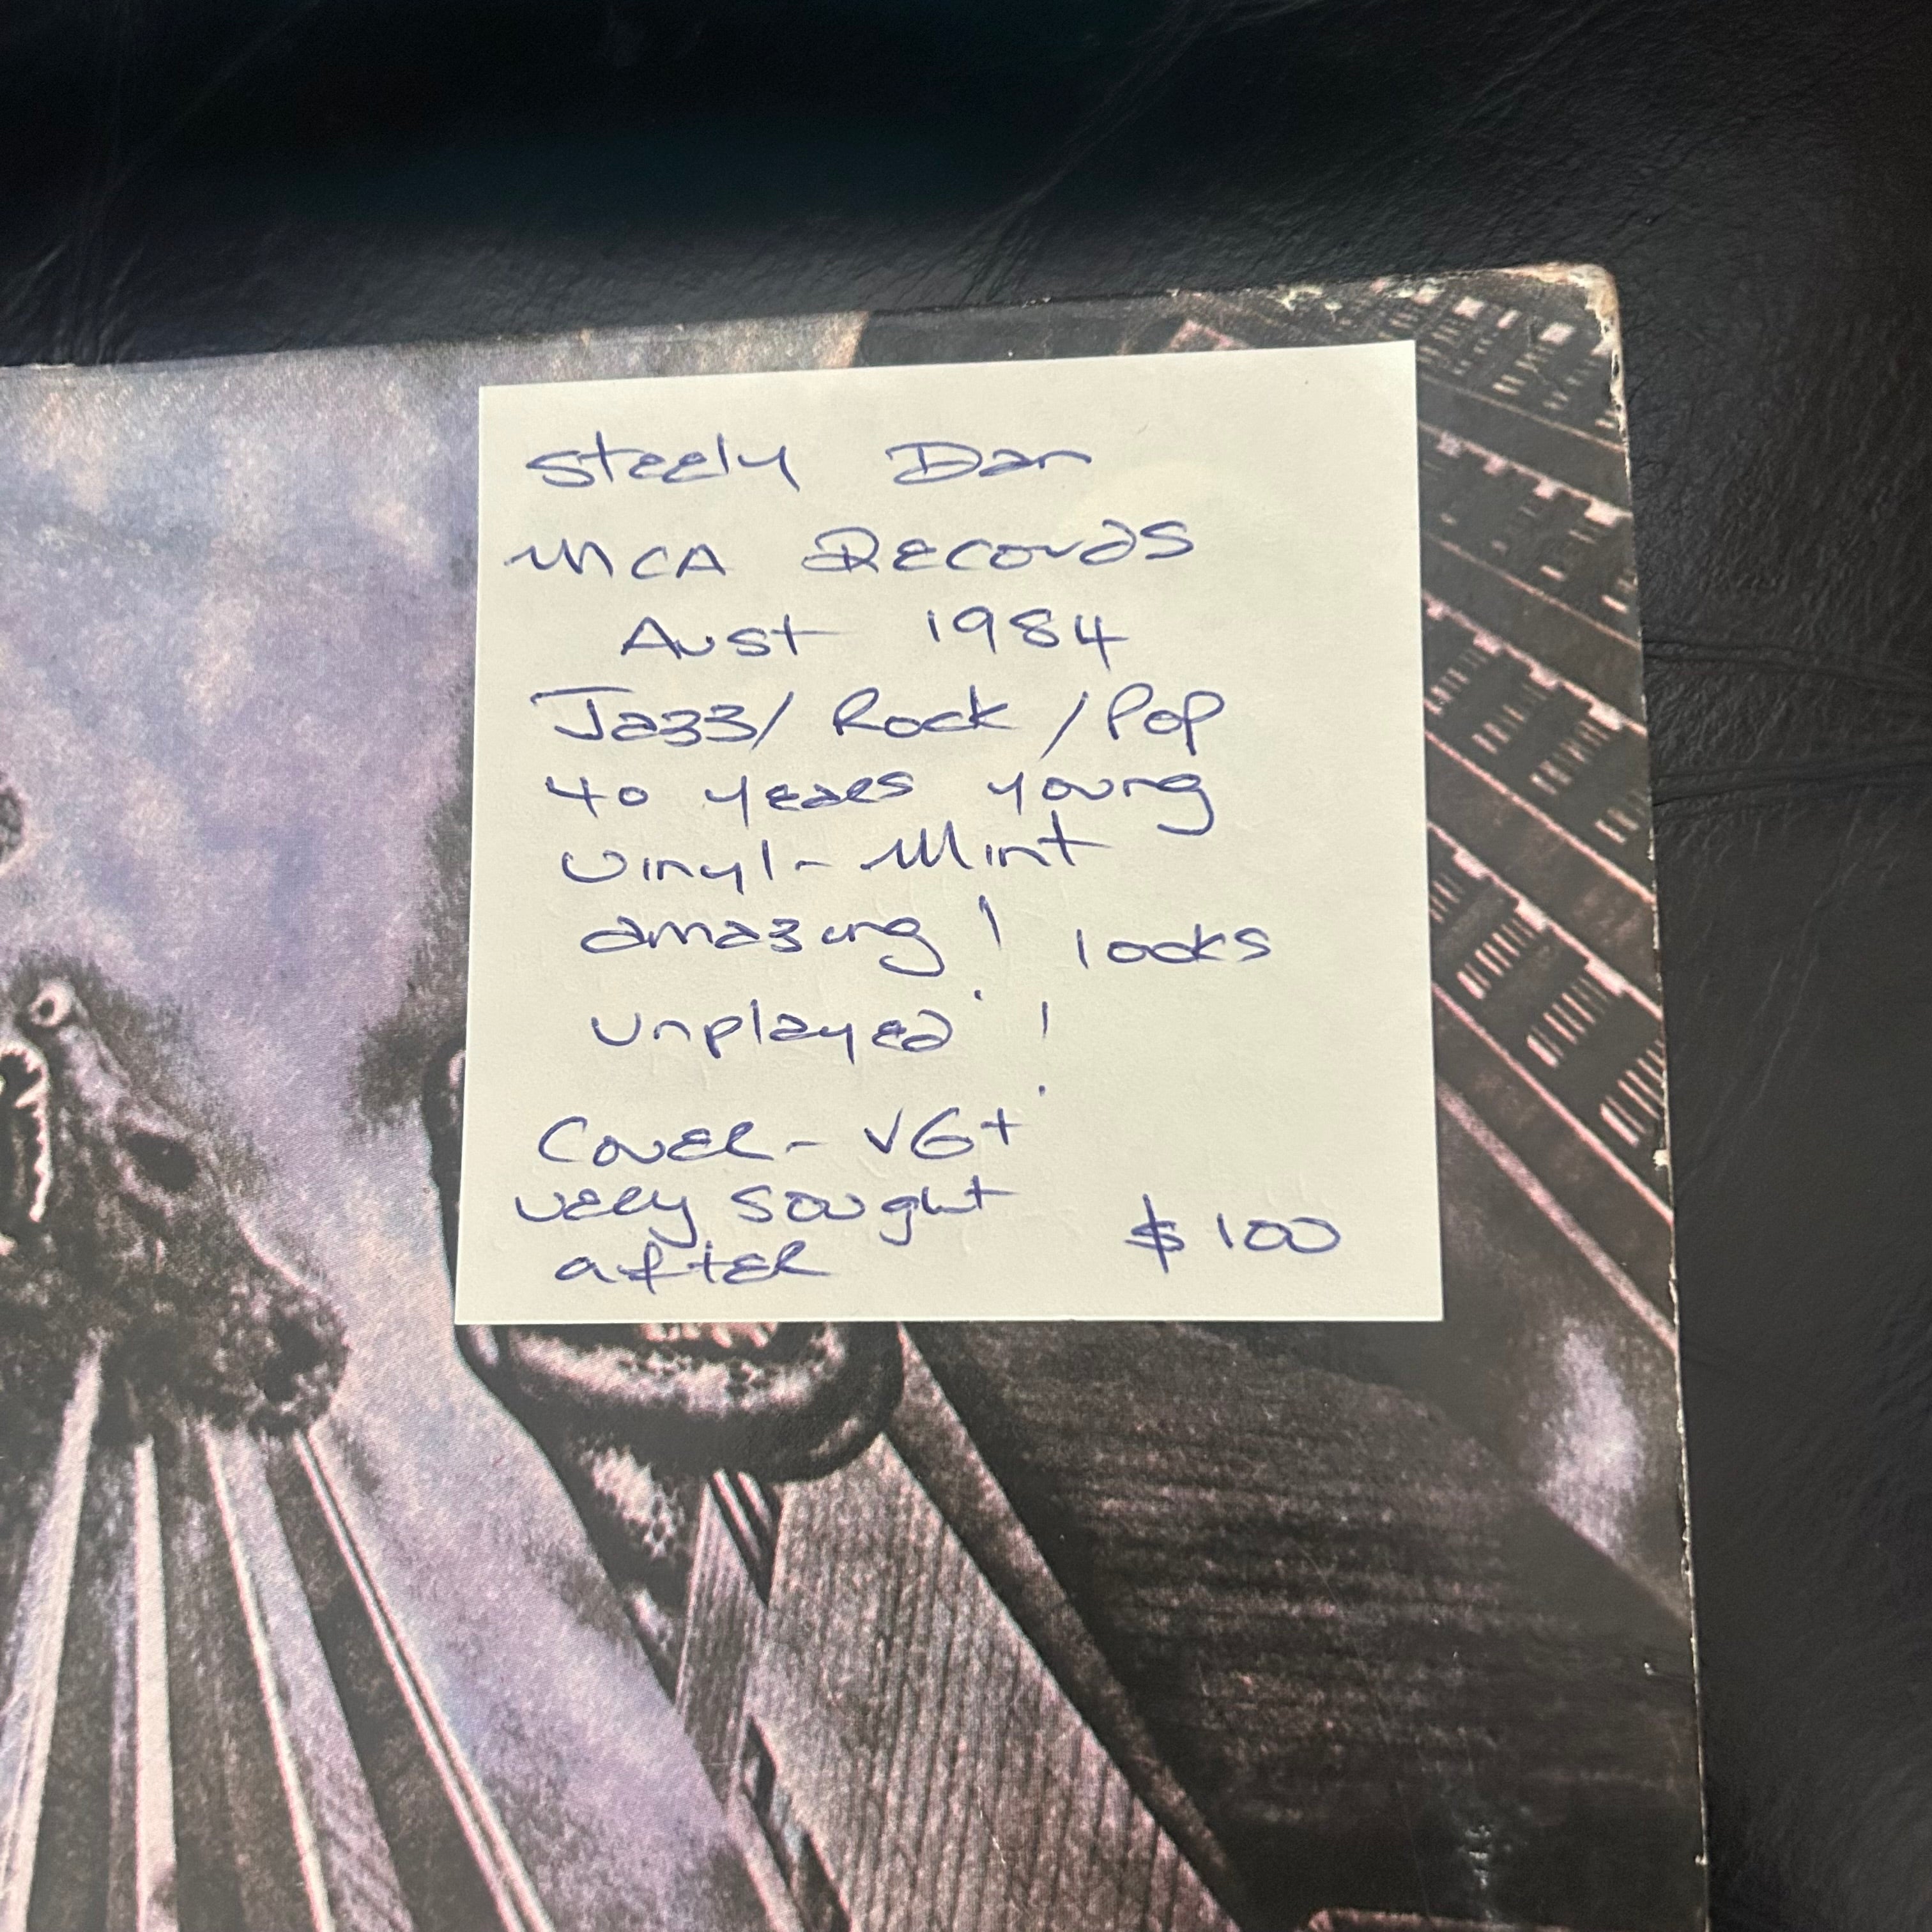 Steely Dan
MCA Records
Aust 1984
Jazz/Rock/Pop
40 years young
Vinyl - Mint
amazing! looks
unplayed!
Cover - VG+
very sought
after $100